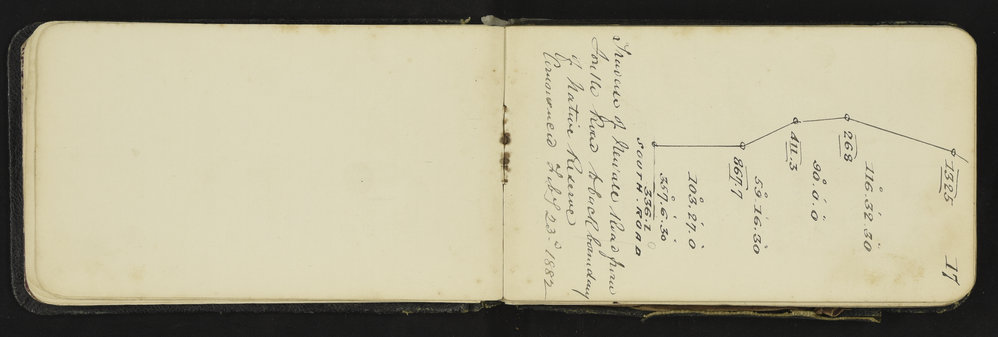 17
1325
116°.32'.30"
268
90°.0'.0
411.3
59°.16'.30
867.7
103°.27'.0"
357°.6'.30"
336.1
SOUTH. ROAD
Traverse of Road from
Road to back boundary
of Native Reserve
Commenced Feby 23d 1882